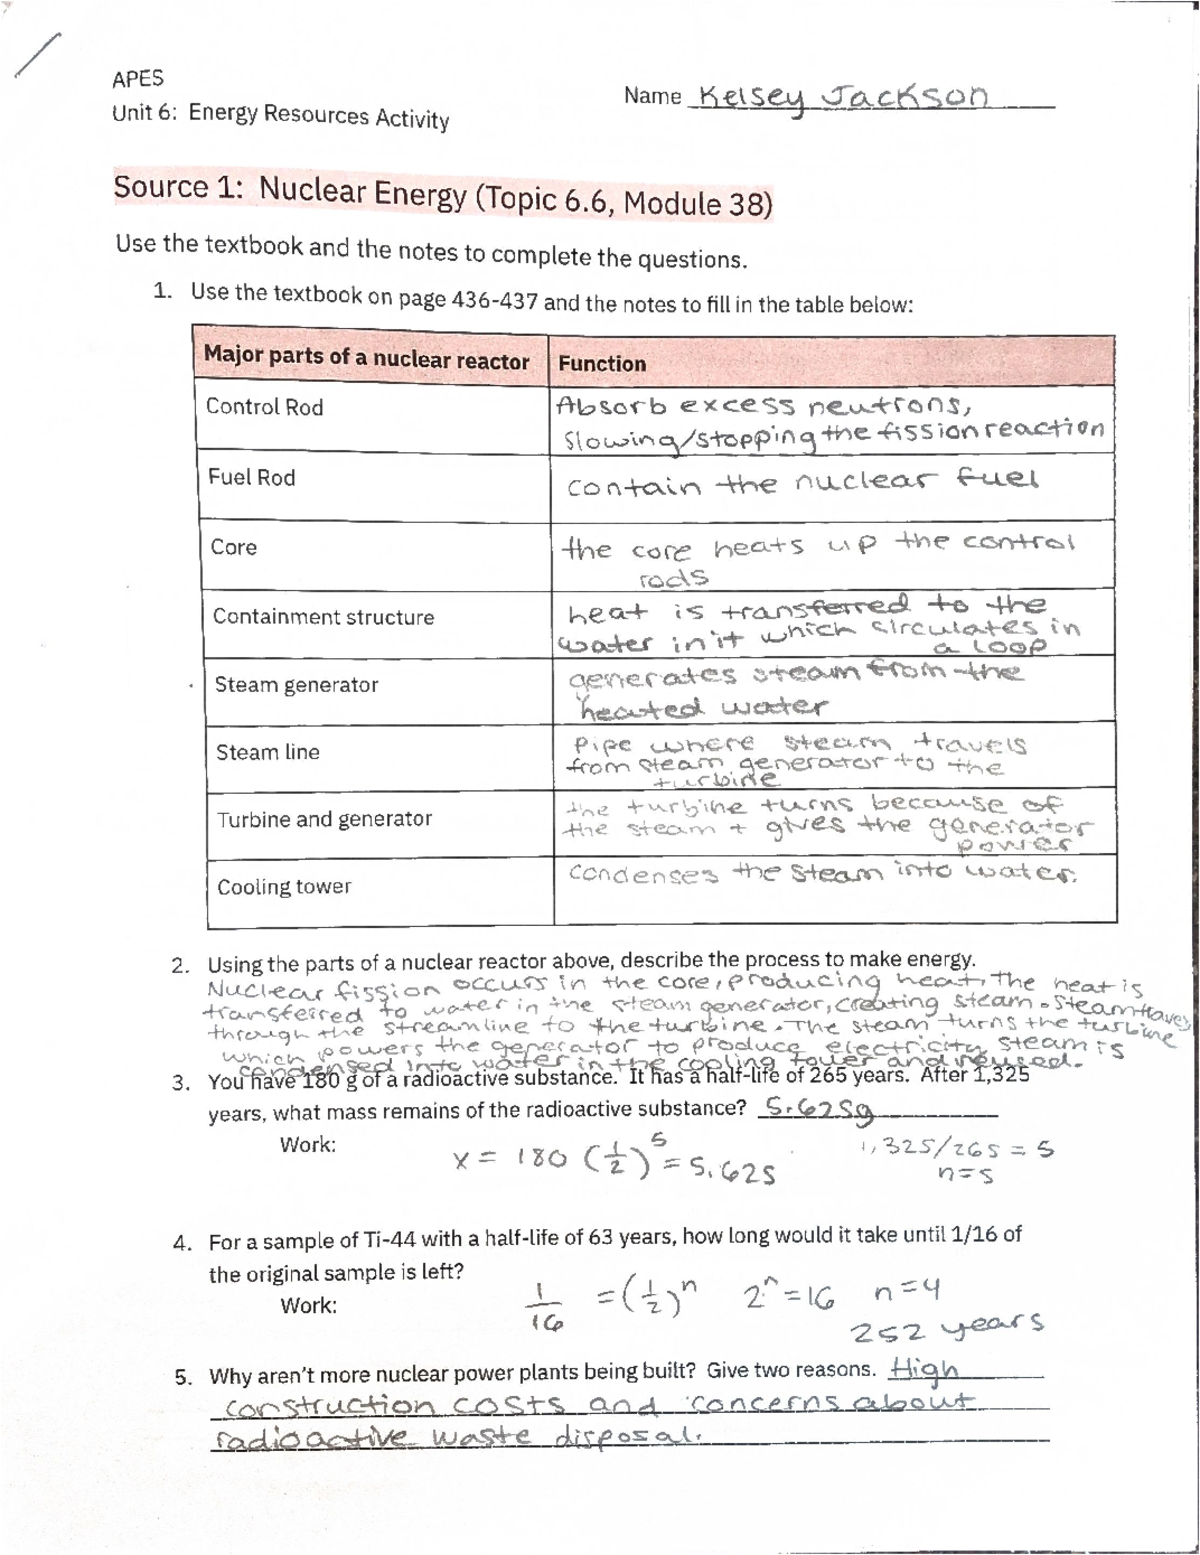 APES
Name Kelsey Jackson
Unit 6: Energy Resources Activity
Source 1: Nuclear Energy (Topic 6.6, Module 38)
Use the textbook and the notes to complete the questions.
1. Use the textbook on page 436-437 and the notes to fill in the table below:
Major parts of a nuclear reactor Function
Control Rod Absorb excess neutrons,
slowing/stopping the fission reaction
Fuel Rod contain the nuclear fuel
Core the core heats up the control
rods
Containment structure heat is transferred to the
water in it which circulates in
a loop
Steam generator generates steam from the
heated water
Steam line Pipe where steam travels
from steam generator to the
turbine
Turbine and generator the turbine turns because of
the steam + gives the generator
power
Cooling tower condenses the steam into water.
2. Using the parts of a nuclear reactor above, describe the process to make energy.
Nuclear fission occurs in the core, producing heat. The heat is
transferred to water in the steam generator, creating steam. Steam travels
through the streamline to the turbine. The steam turns the turbine
which powers the generator to produce electricity. Steam is
condensed into water in the cooling tower and reused.
3. You have 180 g of a radioactive substance. It has a half-life of 265 years. After 1,325
years, what mass remains of the radioactive substance? 5.625g
Work: x = 180 (1/2)^5 = 5.625 1,325/265 = 5
n=5
4. For a sample of Ti-44 with a half-life of 63 years, how long would it take until 1/16 of
the original sample is left?
Work: 1/16 = (1/2)^n 2^n = 16 n=4
252 years
5. Why aren't more nuclear power plants being built? Give two reasons. High
construction costs and concerns about
radioactive waste disposal.